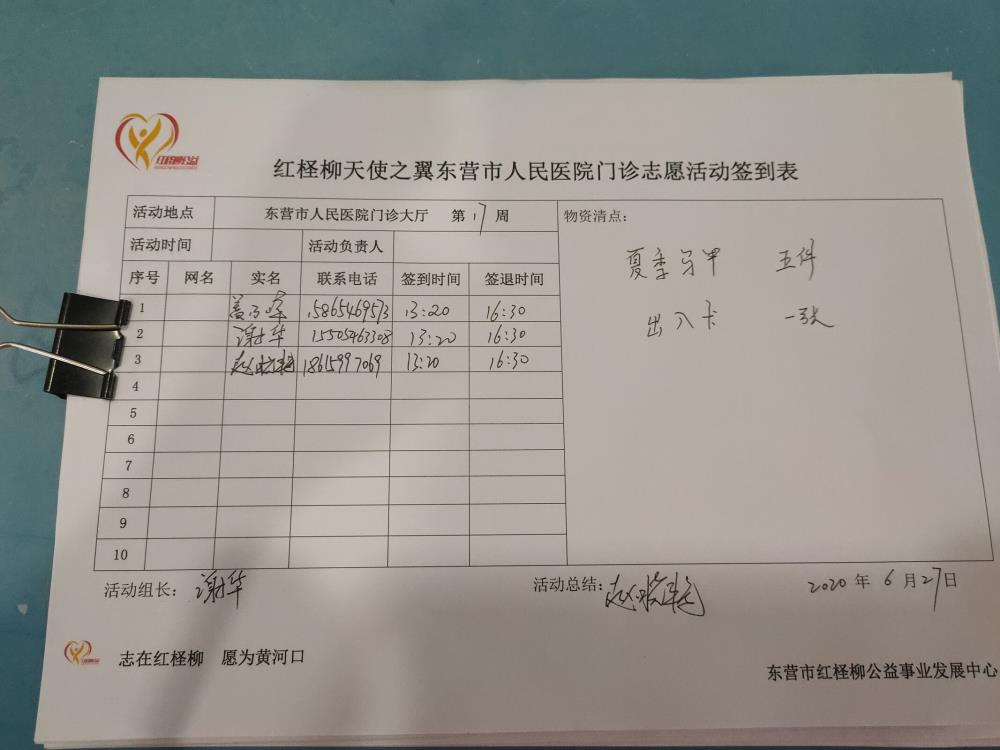 红柽柳公益
红柽柳天使之翼东营市人民医院门诊志愿活动签到表
活动地点 东营市人民医院门诊大厅 第 17 周
物资清点:
活动时间 活动负责人
序号 网名 实名 联系电话 签到时间 签退时间
夏季马甲 五件
出入卡 一张
1 13:20 16:30
2 谢华 15505463308 13:20 16:30
3 18615997069 13:20 16:30
4
5
6
7
8
9
10
活动组长: 谢华 活动总结: 2020 年 6 月 27 日
志在红柽柳 愿为黄河口
东营市红柽柳公益事业发展中心